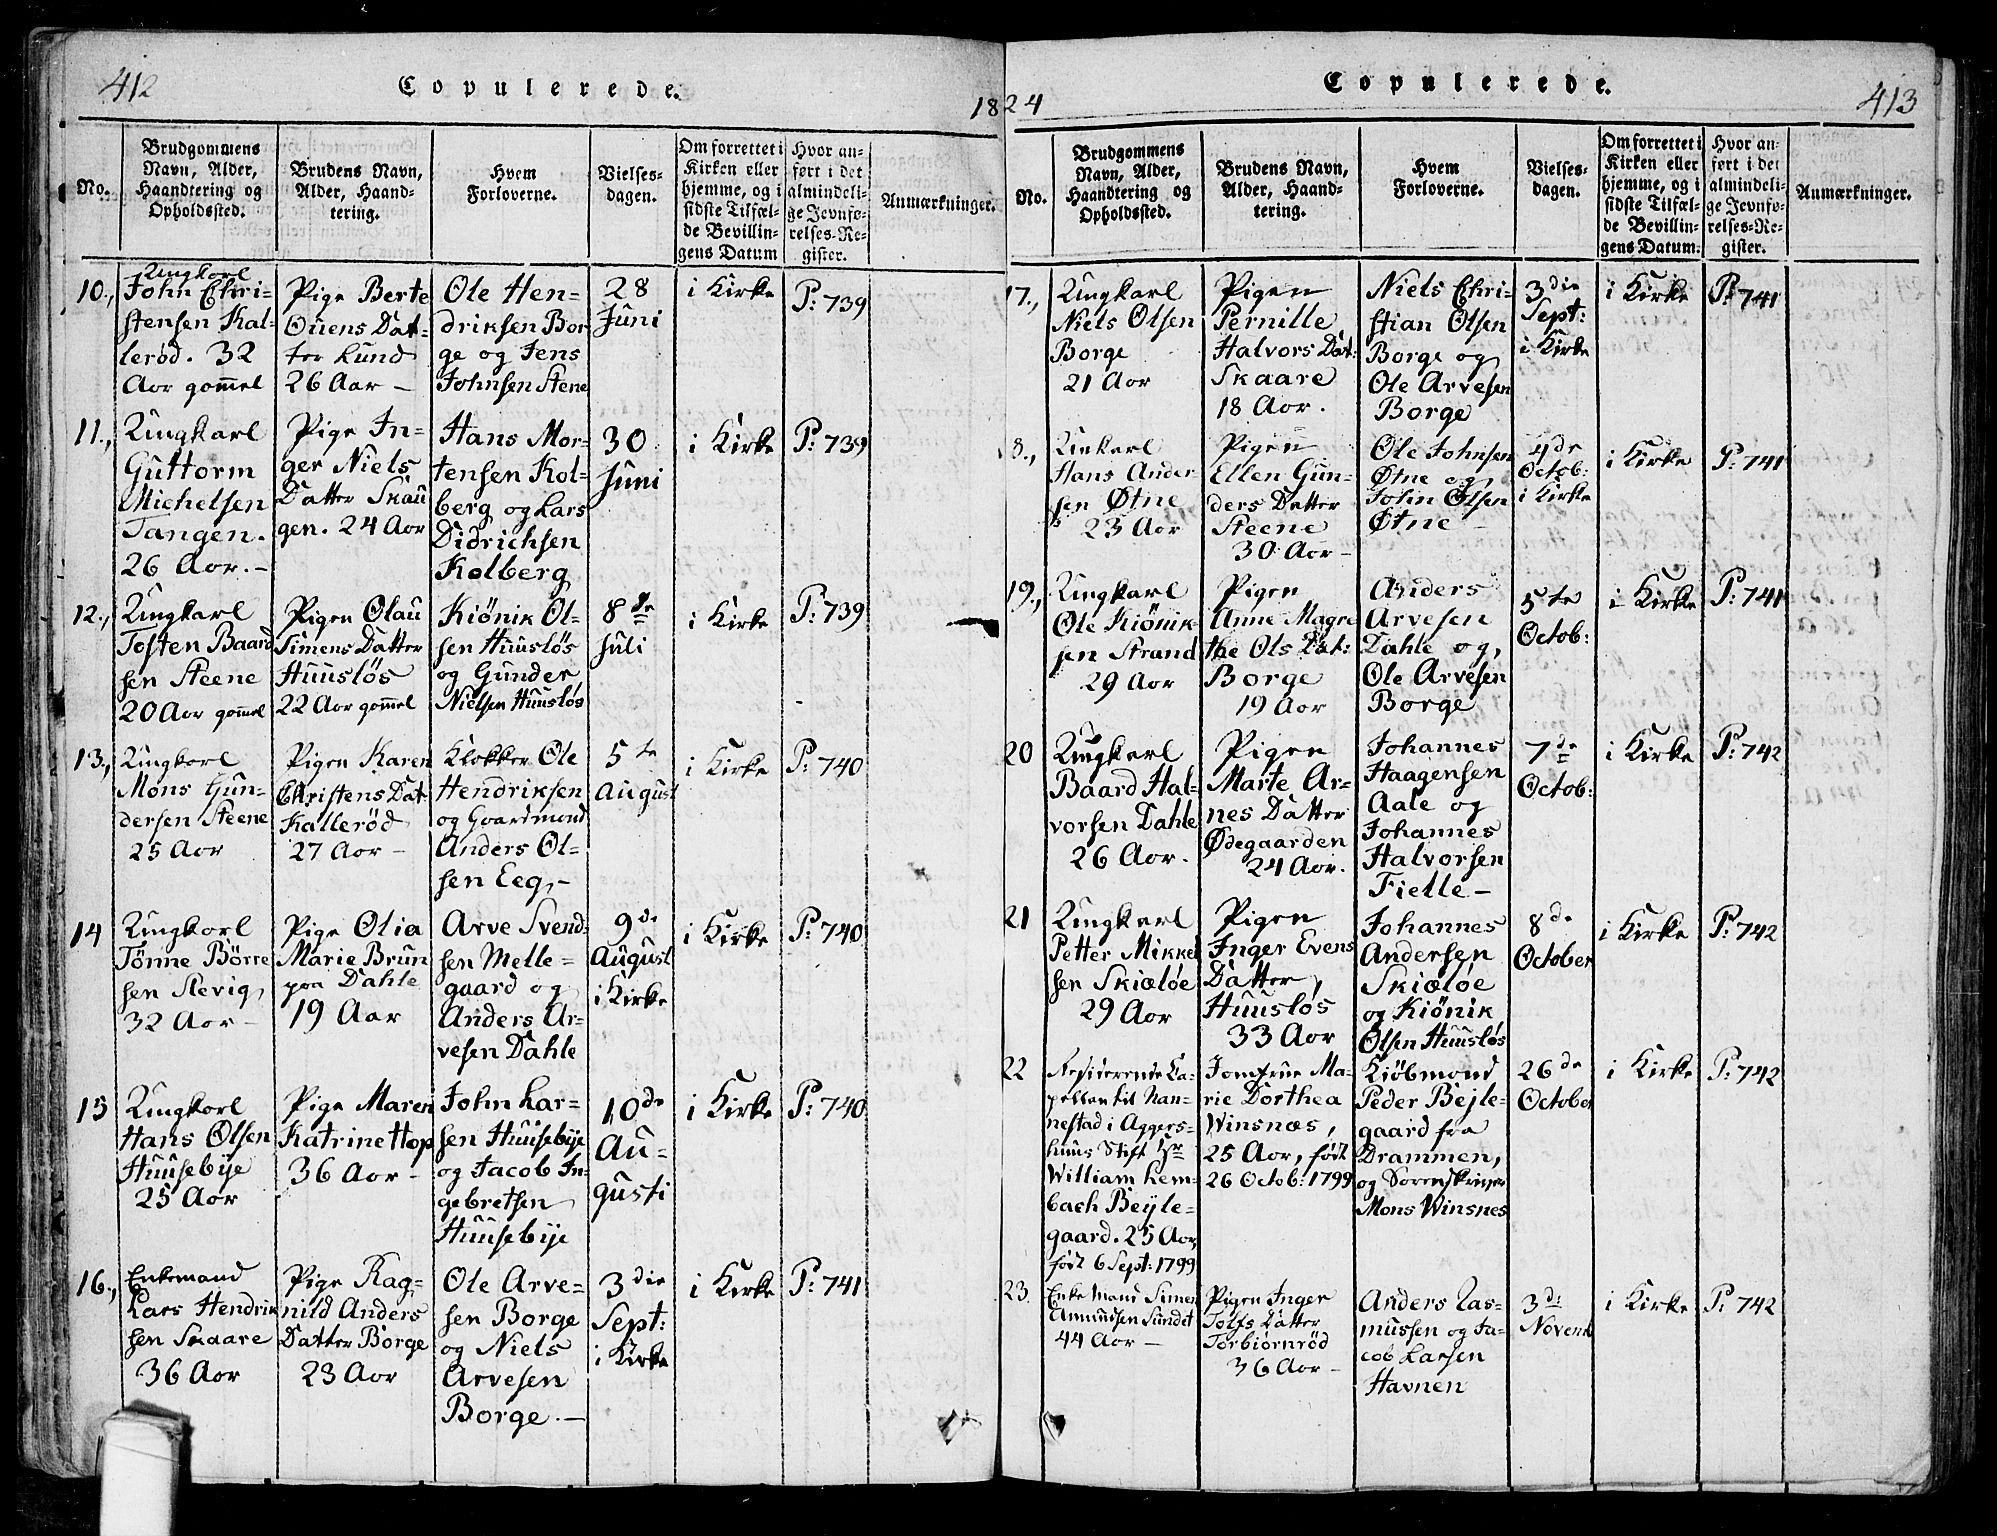 412
Copulerede.
18
No.
Brudgommens
Navn, Alder,
Haandtering og
Opholdssted.
Brudens Navn,
Alder, Haand-
tering.
Hvem
Forloverne.
Vielses-
dagen.
Om forrettet i
Kirken eller
hjemme, og i
sidste Tilfæl-
de Bevillin-
gens Datum
Hvor an-
ført i det
almindeli-
ge Jevnfø-
relses-Re-
gister.
Anmærkninger.
10.,
Ungkarl
John Chri-
stensen Kal-
lerød. 32
Aar gammel
Pige Berte
Ouens Dat-
ter Lund
26 Aar –
Ole Hen-
driksen Bor
ge og Jens
Johnsen Stene
28
Juni
i Kirke
P: 739
11.,
Ungkarl
Guttorm
Michelsen
Tangen.
26 Aar. –
Pige In-
ger Niels
Datter Skau
gen. 24 Aar
Hans Mor-
tensen Kol-
berg og Lars
Didrichsen
Kolberg
30
Juni
i Kirke
P: 739
12.,
Ungkarl
Tosten Baard
sen Steene
20 Aar gammel
Pigen Olau
Simens Datter
Huusløs
22 Aar gammel
Kiönik Ol-
sen Huusløs
og Gunder
Nielsen Huusløs
8de
Juli
i Kirke
P: 739
13.,
Ungkarl
Mons Gun-
dersen Steene
25 Aar
Pigen Karen
Christens Dat
Kallerød
27 Aar –
Klokker Ole
Hendriksen
og Gaardmand
Anders Ol-
sen Eeg, –
5te
August
i Kirke
P: 740
14
Ungkarl
Tönne Börre
sen Slevig
32 Aar –
Pige Olia
Marie Brun
paa Dahle
19 Aar
Arve Svend
sen Melle-
gaard og
Anders Ar-
vesen Dahle
9de
August
i Kirke
i Kirke
P: 740
15
Ungkarl
Hans Olsen
Huusebye
25 Aar
Pige Maren
Katrine Hop
36 Aar –
John Lar-
sen Huusebye
og Jacob In-
gebretsen
Huusebye
10de
Au-
gusti
i Kirke
P: 740
16.,
Enkemand
Lars Hendrik
sen Skaare
36 Aar
Pige Rag-
nild Anders
Datter Borge
23 Aar
Ole Arve-
sen Borge
og Niels
Arvesen
Borge. –
3die
Sept:
i Kirke
i Kirke
P: 741
24
Copulerede.
413
No.
Brudgommens
Navn, Alder,
Haandtering og
Opholdssted.
Brudens Navn,
Alder, Haand-
tering.
Hvem
Forloverne.
Vielses-
dagen.
Om forrettet i
Kirken eller
hjemme, og i
sidste Tilfæl-
de Bevillin-
gens Datum.
Hvor an-
ført i det
almindeli-
ge Jevnfø-
relses-Re-
gister.
Anmærkninger.
17.,
Ungkarl
Niels Olsen
Borge
21 Aar
Pigen
Pernille
Halvors Dat:
Skaare
18 Aar.
Niels Chri-
stian Olsen
Borge og
Ole Arvesen
Borge
3die
Sept:
i Kirke
i Kirke
P: 741
8.,
Unkarl
Hans Ander
sen Øtne
23 Aar
Pigen
Ellen Gun-
ders Datter
Steene
30 Aar –
Ole Johnsen
Øtne og
John Olsen
Øtne –
4de
Octob:
i Kirke
i Kirke
P: 741
19.,
Ungkarl
Ole Kiönik-
sen Strand
29 Aar
Pigen
Anne Magre
the Ols Dat:
Borge
19 Aar
Anders
Arvesen
Dahle og,
Ole Arvesen
Borge
5te
Octob:
i Kirke
P: 741
20
Ungkarl
Baard Hal-
vorsen Dahle
26 Aar.
Pigen
Marte Ar-
nes Datter
Ødegaarden
24 Aar.
Johannes
Haagensen
Aale og
Johannes
Halvorsen
Fielle –
7de
Octob:
i Kirke
P: 742
21
Ungkarl
Petter Mikkel
sen Skiæløe
29 Aar
Pigen
Inger Evens
Datter,
Huusløs
33 Aar
Johannes
Andersen
Skiæløe
og Kiönik
Olsen Huusløs
8de
October
i Kirke
P: 742
22
Residerende Ca-
pellan til Nan-
nestad i Aggers-
huus Stift Hr
William Lem-
bach Beyle-
gaard. 25 Aar,
født 6 Sept: 1799
Jomfrue Ma-
rie Dorthea
Winsnæs,
25 Aar, født
26 Octob: 1799
Kiöbmand
Peder Bejle-
gaard fra
Drammen,
og Sorenskriver
Mons Winsnes
26de
October
i Kirke
P: 742
23.
Enke mand Simen
Amundsen Sundet
44 Aar –
Pigen Inger
Tolfs Datter
Torbiørnrød
36 Aar –
Anders Ras-
mussen og Ja-
cob Larsen
Havnen
3di
Novemb
i Kirke
P: 742